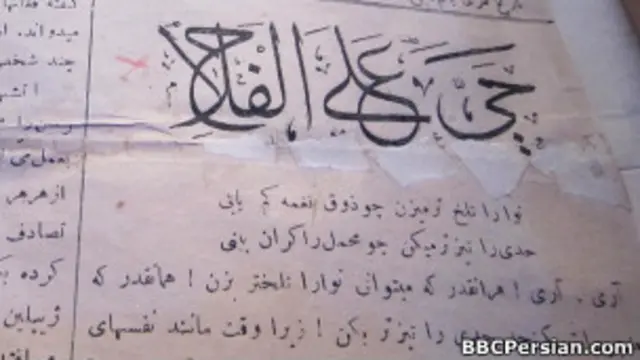 حَیَّ عَلَی الفَلاح
نوارا تلخ ترمیزن چو ذوق نغمه کم یابی
حدی را تیز تر میکن چو محمل را گران بینی
آری . آری ! همانقدر که میتوانی نوارا تلختر بزن ! همانقدر که
حدی را تیز تر بکن ! زیرا وقت مانند نفسهای
میدواند
چند شخص
بعمل می
از هر هر
تصادف
کرده
ژیپلین
BBCPersian.com